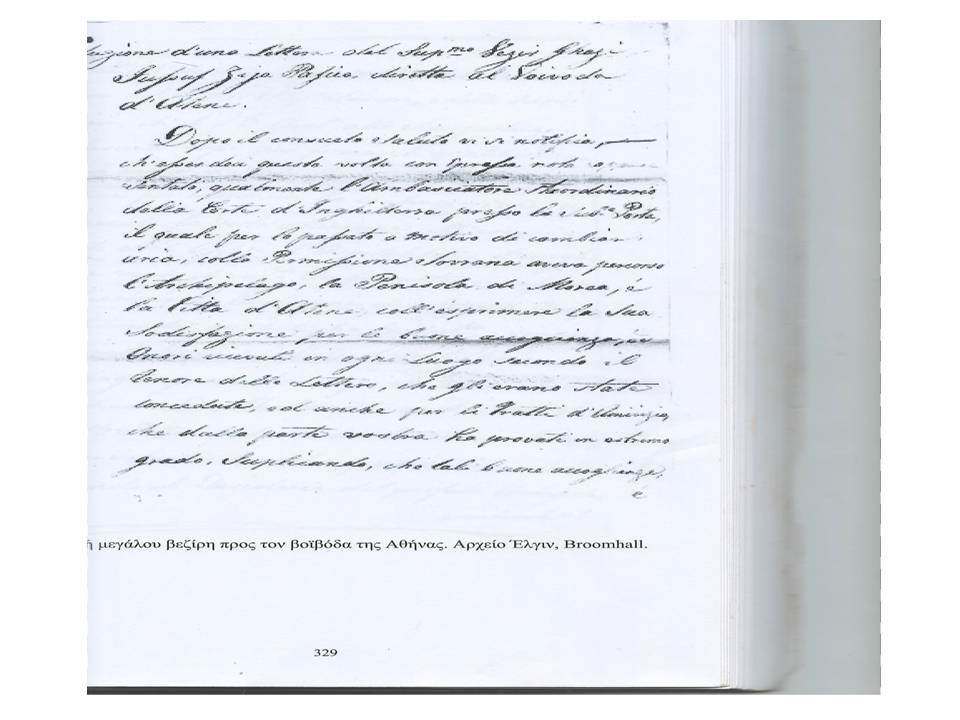 d'una Lettera del Sup.mo Vezir Ghazi
Jussuf Zeja Passa, diretta al Voivoda
d'Atene.
Dopo il consueto saluto vi si notifica,
questa volta con
qualmente l'Ambasciatore Straordinario
della Corte d'Inghilterra presso la Porta,
il quale per lo passato a motivo di cambiar
aria, colla Permissione Sovrana aveva percorso
l'Archipelago, la Penisola di Morea, é
la Città d'Atene coll'esprimere la sua
Sodisfazione per le buone accoglienze,
Onori ricevuti in ogni Luogo secondo il
tenore delle Lettere, che gli erano state
concedute, ed anche per li Tratti d'Amicizia,
che dalla parte vostra ha provati in estremo
grado, Suplicando, che tali buone accoglienze,
é
ή μεγάλου βεζίρη προς τον βοϊβόδα της Αθήνας. Αρχείο Έλγιν, Broomhall.
329